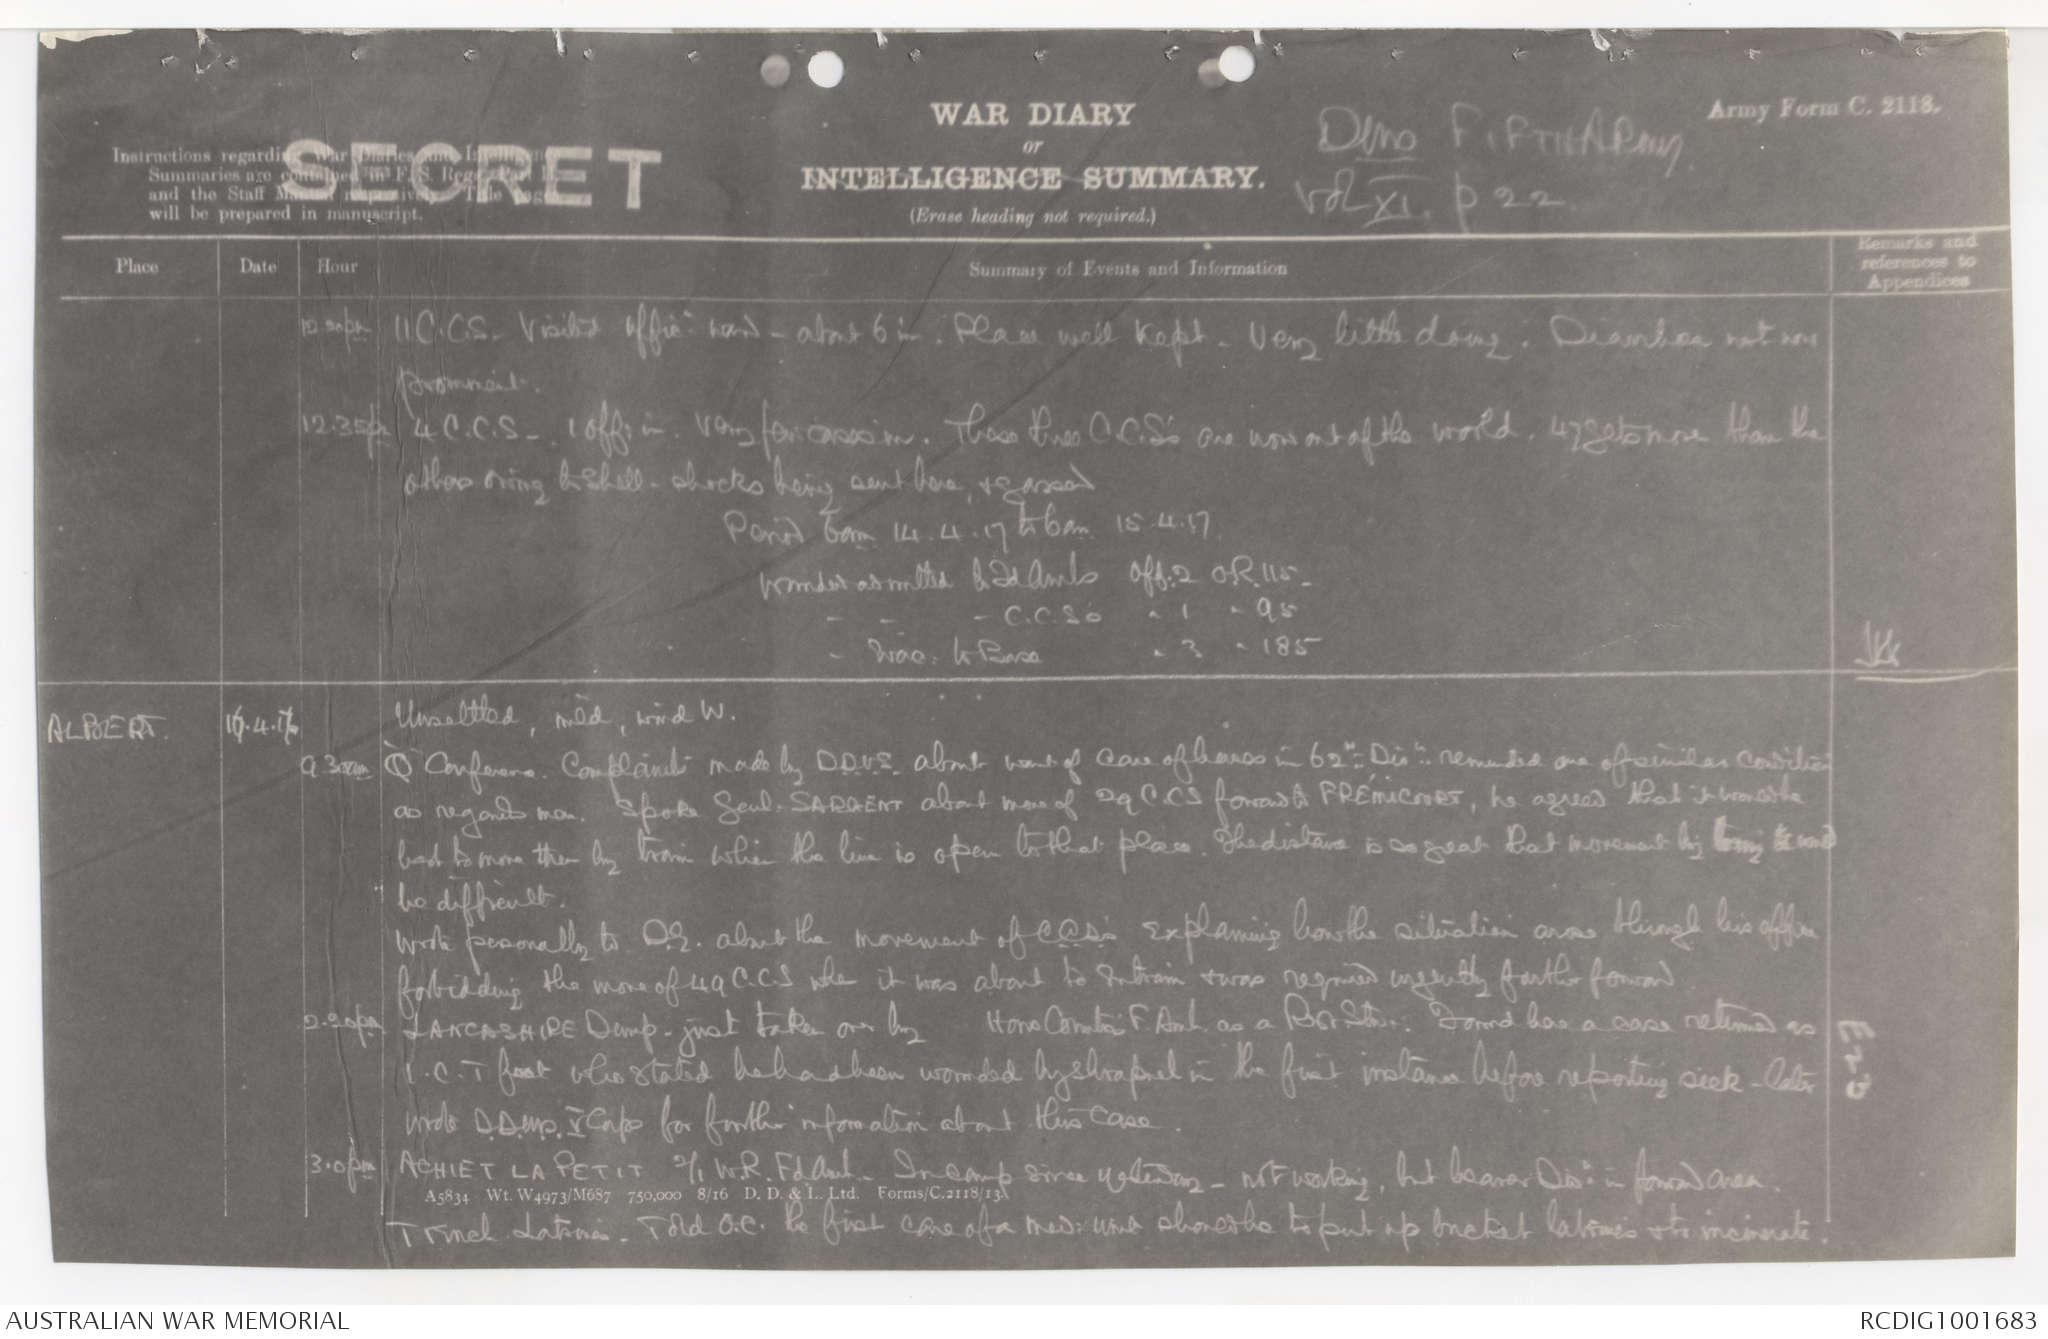 WAR DIARY
or
INTELLIGENCE SUMMARY.
(Erase heading not required.)
Army Form C. 2118.
DMS FIFTH ARMY
Vol XI. p 22.
SECRET
Instructions regarding War Diaries and Intelligence
Summaries are contained in F.S. Regs., Part II.
and the Staff Manual respectively. Title pages
will be prepared in manuscript.
Place Date Hour Summary of Events and Information Remarks and references to Appendices
11 C.C.S. Visited offrs ward - about 6 in. Place well kept. Very little doing. Diarrhoea not now
prominent.
12.35pm 4 C.C.S. - 1 offr in. Very few cases in. These three C.C.S's are now out of the world. 47 gets more than the
others owing to shell-shocks being sent here, & gassed
Period 6am 14.4.17 to 6am 15.4.17.
Wounded admitted to Fd Ambs Off: 2 O.R. 115
- - - C.C.S's " 1 " 95
- Evac. to Base " 3 " 185
ALBERT. 16.4.17 Unsettled, mild, wind W.
9.30am "Q" Conference. Complaints made by D.D.V.S. about want of care of horses in 62nd Divn reminded one of similar condition
as regards men. Spoke Genl. SARGENT about move of 29 C.C.S forward to FRÉMICOURT, he agreed that it would be
best to move them by train when the line is open to that place. The distance is so great that movement by
be difficult.
Wrote personally to D.G. about the movement of C.C.S's explaining how the situation arose through his office
forbidding the move of 49 C.C.S when it was about to entrain & was required urgently further forward.
2.20pm LANCASHIRE Dump - just taken over by Home Counties F. Amb. as a Found here a case returned as
I.C.T foot who stated he had been wounded by shrapnel in the first instance before reporting sick - later
wrote D.D.M.S. V Corps for further information about this case.
3.0pm ACHIET LA PETIT 2/1 W.R. Fd Amb. - In camp since yesterday - not working, but bearer Divn in forward area.
A5834 Wt. W4973/M687 750,000 8/16 D. D. & L. Ltd. Forms/C.2118/13.
Trench Latrines. Told O.C. the first care of a med: unit should be to put up bucket latrines & to incinerate.
AUSTRALIAN WAR MEMORIAL
RCDIG1001683